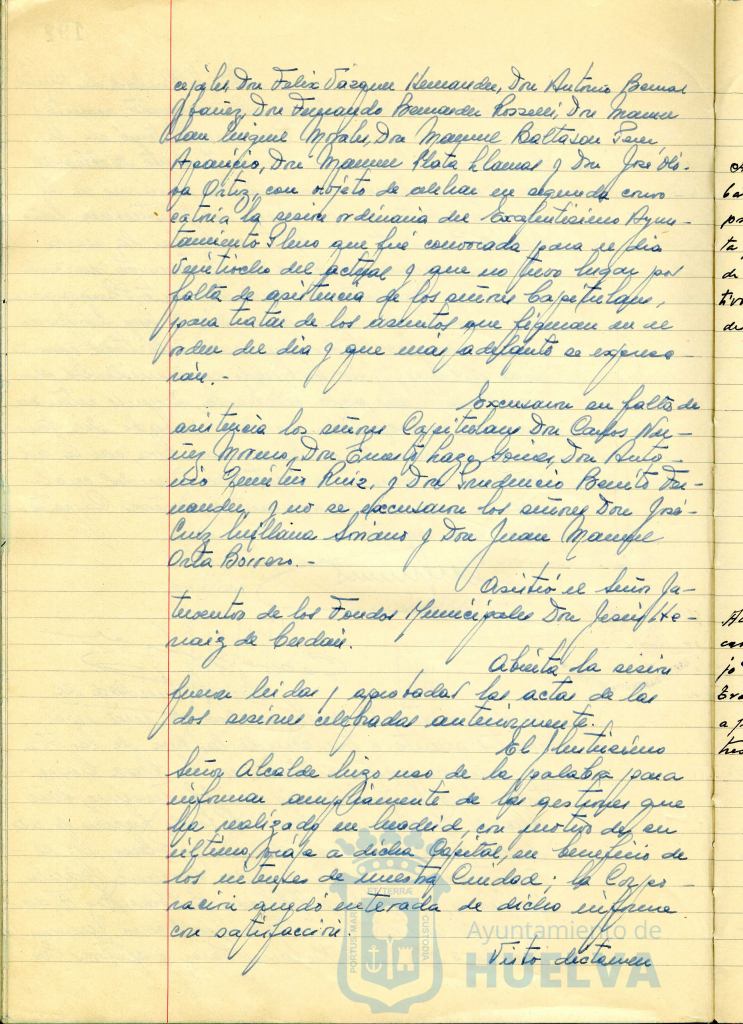 cejales Don Felix Vázquez Hernandez, Don Antonio Bernal
Ybañez, Don Fernando Bernardez Rosselli, Don Manuel
San Miguel Morales, Don Manuel Baltasar Perez
Aparicio, Don Manuel Plata Llamas y Don José Oli-
va Ortiz, con objeto de celebrar en segunda convo-
catoria la sesión ordinaria del Excelentísimo Ayun-
tamiento Pleno que fué convocada para el dia
veintiocho del actual y que no tuvo lugar por
falta de asistencia de los señores Capitulares,
para tratar de los asuntos que figuran en el
orden del dia y que más adelante se expresa-
rán.-
Excusaron su falta de
asistencia los señores Capitulares Don Carlos
Moreno, Don Ernesto Lazo Don Anto-
nio Ruiz, y Don Prudencio Benito Fer-
nandez, y no se excusaron los señores Don José-
Cruz Soriano y Don Juan Manuel
Orta Borrero.-
Asistió el Señor In-
terventor de los Fondos Municipales Don Jesús He-
raiz de
Abierta la sesión
fueron leidas y aprobadas las actas de las
dos sesiones celebradas anteriormente.
El Ilustrísimo
Señor Alcalde hizo uso de la palabra para
informar ampliamente de las gestiones que
ha realizado en Madrid, con motivo de su
último viaje a dicha Capital, en beneficio de
los intereses de nuestra Ciudad; la Corpo-
ración quedó enterada de dicho informe
con satisfacción.
Visto dictamen
PORTUS MARIS
ET TERRAE
CUSTODIA
Ayuntamiento de
HUELVA